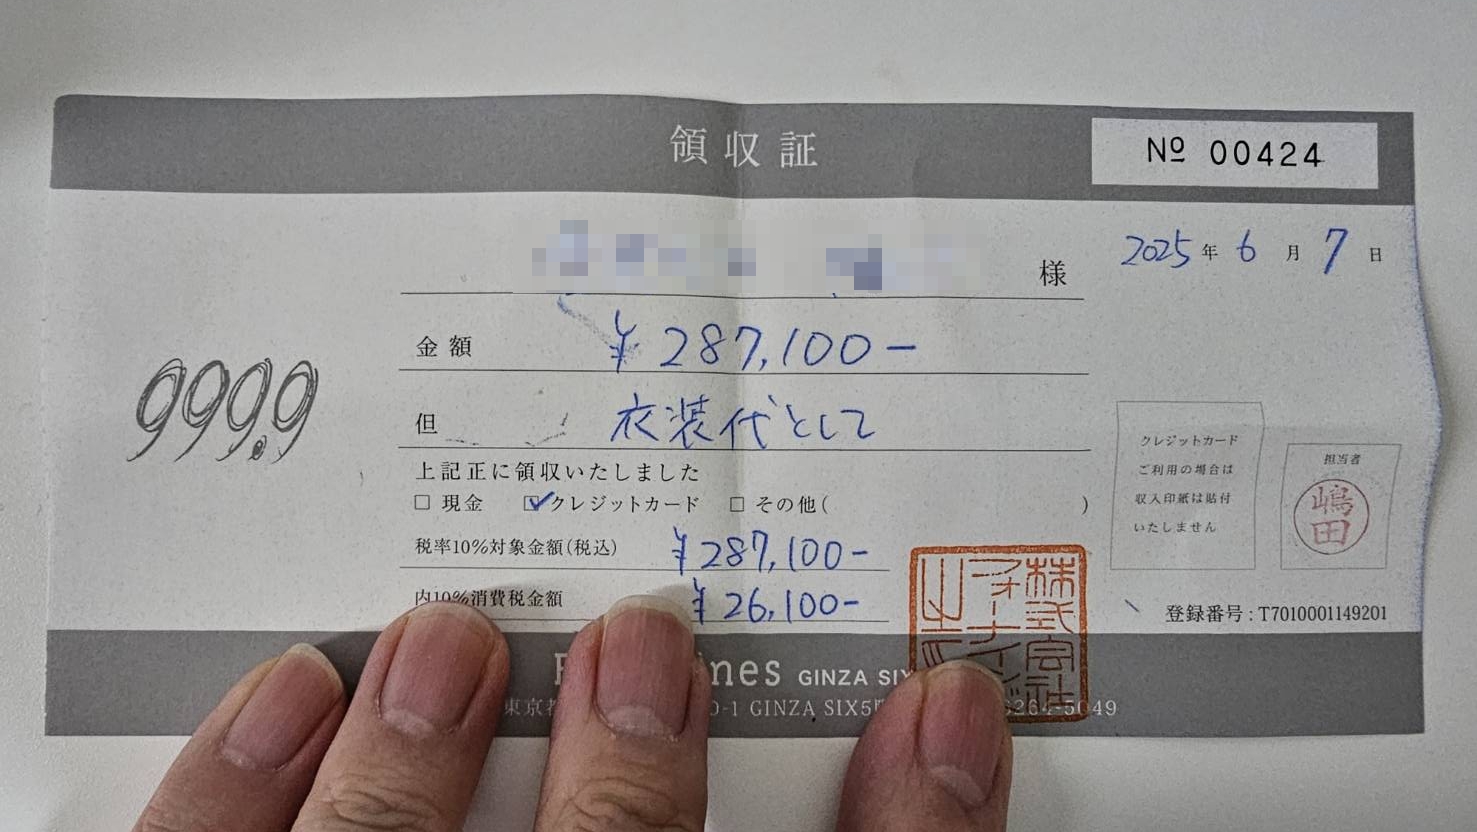 領収証
Nº 00424
様
2025年6月7日
金額 ¥287,100-
999.9
但 衣装代として
上記正に領収いたしました
□ 現金 ☑ クレジットカード □ その他( )
クレジットカード
ご利用の場合は
収入印紙は貼付
いたしません
担当者
嶋田
税率10%対象金額(税込) ¥287,100-
内10%消費税金額 ¥26,100-
登録番号:T7010001149201
株式会社
フォーナインズ
nes GINZA SIX
東京 0-1 GINZA SIX5 264-5049